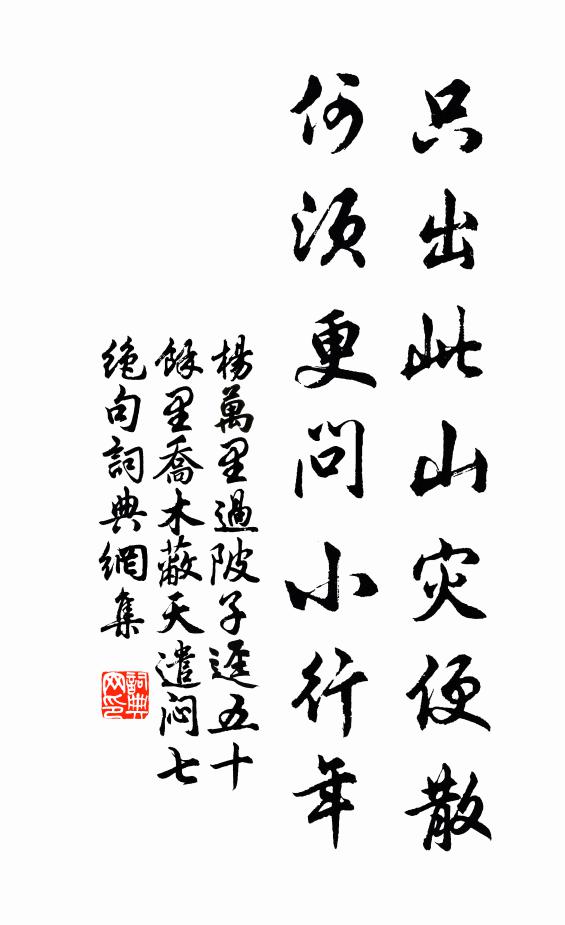 只出此山灾便散
何须更问小行年
楊萬里過陂子遥五十
餘里喬木蔽天遣闷七
绝句詞典網集
詞典
网印